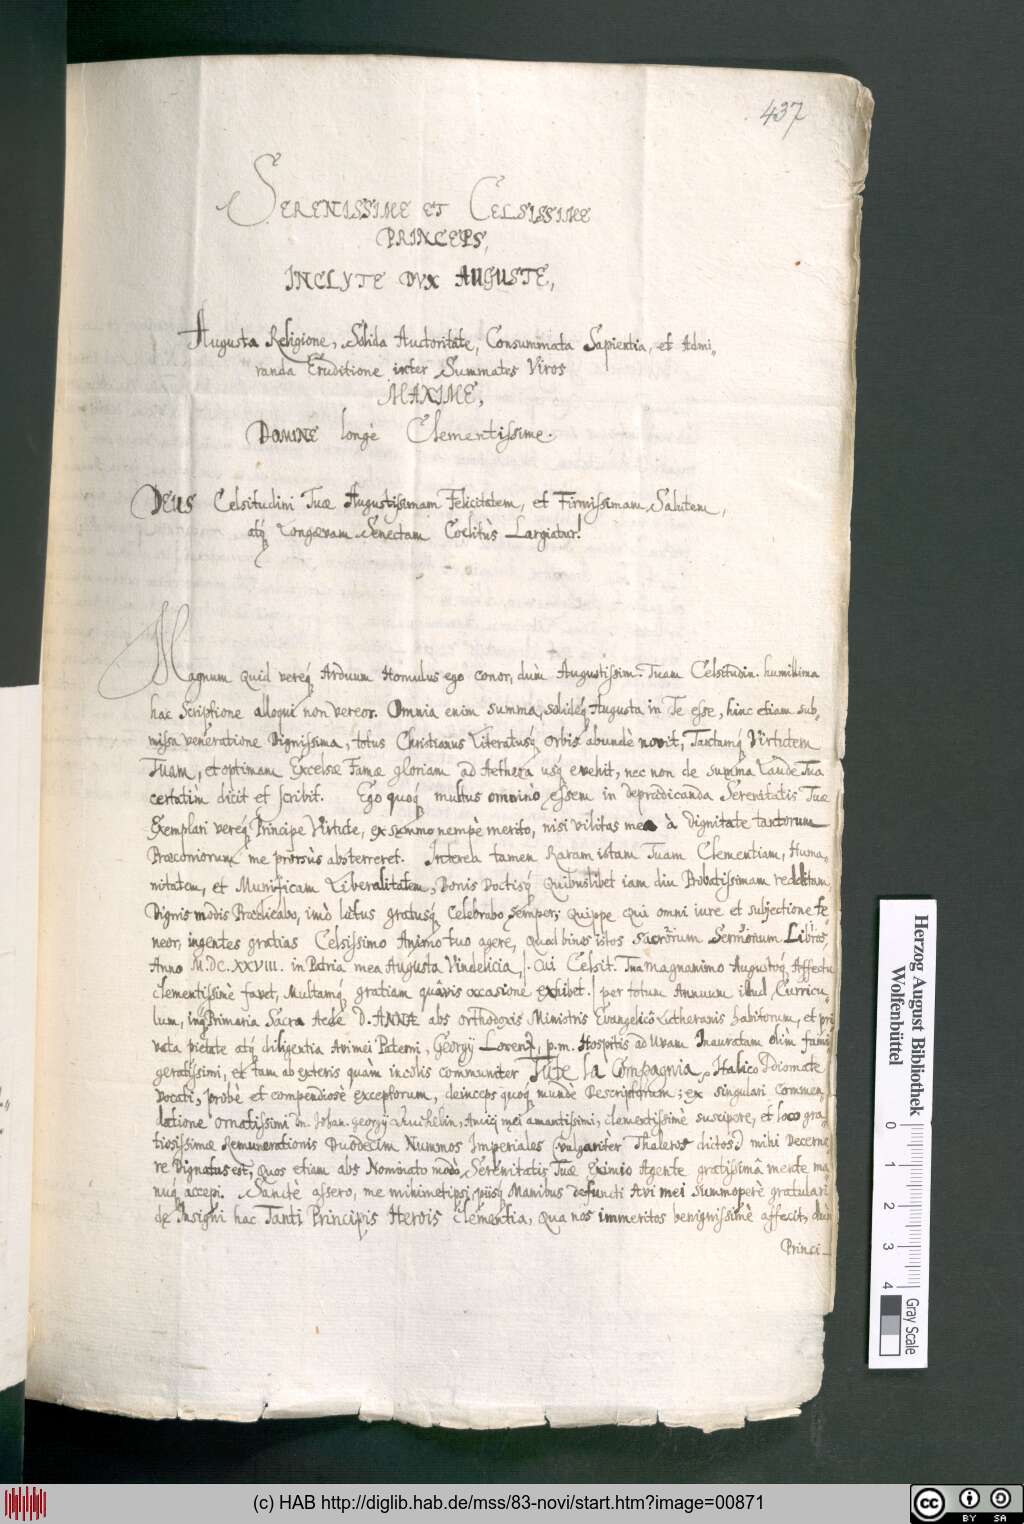 437
SERENISSIME ET CELSISSIME
PRINCEPS,
INCLYTE DVX AUGUSTE,
Augusta Religione, Solida Auctoritate, Consummata Sapientia, et Admi-
randa Eruditione inter Summates Viros
MAXIME,
DOMINE longè Clementissime.
DEUS Celsitudini Tuæ Augustissimam Felicitatem, et Firmissimam Salutem,
atq Longævam Senectam Coelitùs Largiatur!
Magnum quid vereq Arduum Homulus ego conor, dùm Augustissim. Tuam Celsitudin. humillima
hac Scriptione alloqui non vereor. Omnia enim summa, solideq Augusta in Te esse, hinc etiam sub-
missa veneratione Dignissima, totus Christianus Literatusq orbis abundè novit, Tantamq Virtutem
Tuam, et optimam Excelsæ Famæ gloriam ad Aethera usq evehit, nec non de summa Laude Tua
certatìm dicit et scribit. Ego quoq multus omninò essem in depraedicanda Serenitatis Tuæ
Exemplari vereq Principe Virtute, ex summo nempè merito, nisi vilitas mea à dignitate tantorum
Præconiorum me prorsùs absterreret. Interea tamen Raram istam Tuam Clementiam, Huma-
nitatem, et Munificam Liberalitatem, Bonis Doctisq quibuslibet iam diu Probatissimam redditam,
Dignis modis Prædicabo, imò lætus gratusq Celebrabo semper; quippe qui omni iure et subjectione te-
neor, ingentes gratias Celsissimo Animo tuo agere, quod binos istos sacrorum Sermonum Libros,
Anno M.DC.XXVIII. in Patria mea Augusta Vindelicia, |. cui Celsit. Tua magnanimo Augustoq Affectu
clementissimè favet, Multamq gratiam quâvis occasione exhibet .| per totum Annuum illud Curricu-
lum, inq Primaria Sacra Aede D. ANNÆ abs orthodoxis Ministris Evangelicô Lutheranis habitorum, et pri
vata pietate atq diligentia Avi mei Paterni, Georgij Lorenz, p.m. Hospitis ad Uvam Inauratam olim fami
geratissimi, et tam ab exteris quàm incolis communiter Tute la Compagnia, Italico Idiomate
Vocati, probè et compendiosè exceptorum, deinceps quoq mundè Descriptorum; ex singulari commen-
datione ornatissimi Dn. Johan. Georgij, Amici mei amantissimi, clementissimè suscipere, et loco gra-
tiosissimæ Remunerationis Duodecim Nummos Imperiales (vulgariter Thaleros dictos) mihi Decerne-
re Dignatus est, quos etiam abs Nominato modò Serenitatis Tuæ Eximio Agente gratissimâ mente ma-
nuq accepi. Sanctè assero, me minimetipsi, piisq Manibus defuncti Avi mei summoperè gratulari
de Insigni hac Tanti Principis Herois Clementia, qua nos immeritos benignissimè affecit, dùm
Princi-
Herzog August Bibliothek
Wolfenbüttel
0 1 2 3 4
Gray Scale
(c) HAB http://diglib.hab.de/mss/83-novi/start.htm?image=00871
cc BY SA